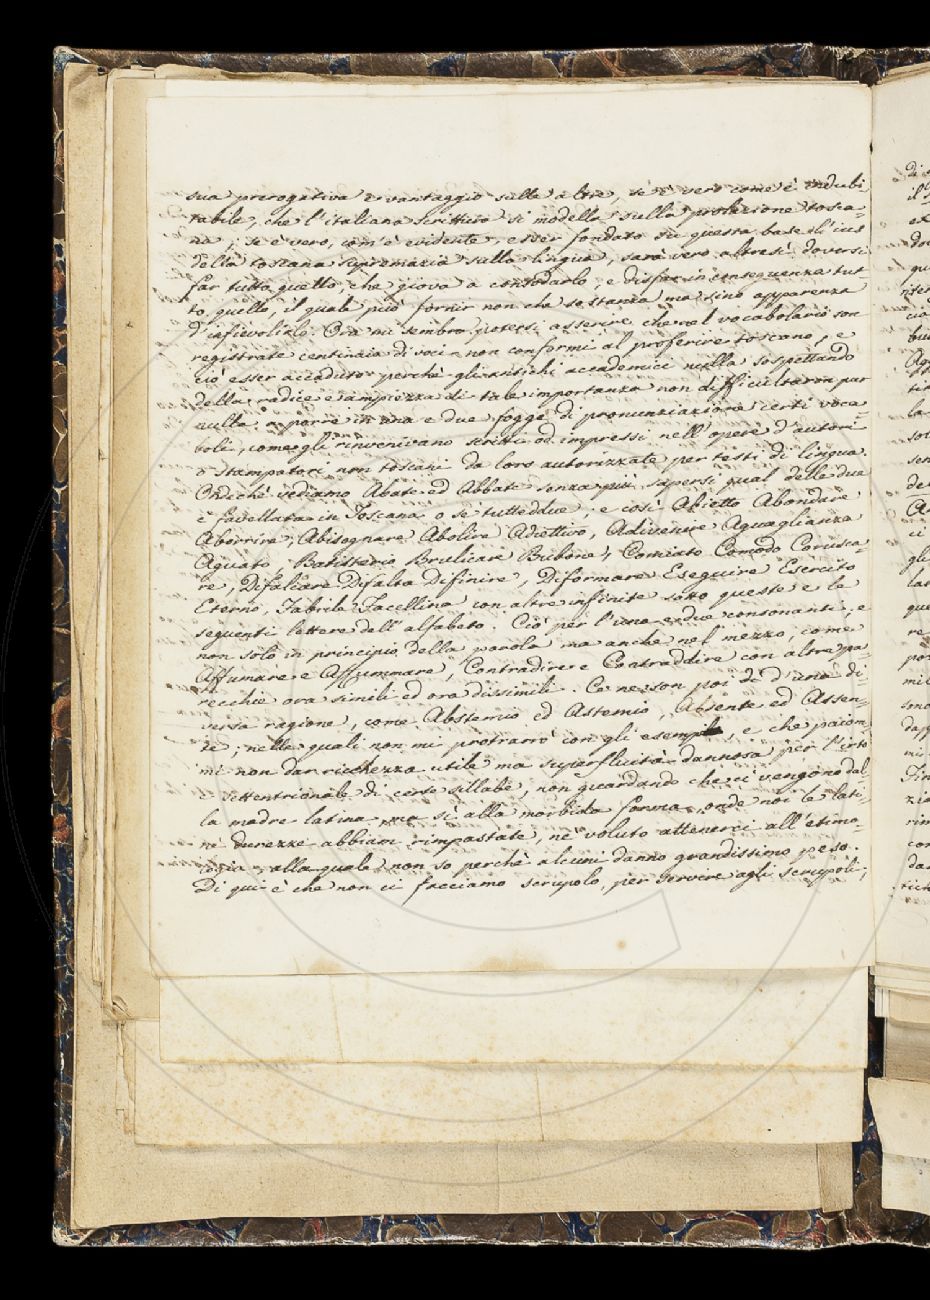 sua prerogativa e vantaggio sulle altre, se è vero come è indubi-
tabile, che l'italiana scrittura si modella sulla prolazione tosca-
na; se è vero, com'è evidente, esser fondato su questa base il ius
della toscana supremazia sulla lingua, sarà vero altresì doversi
far tutto quello, che giova a consodarlo, e disfar in conseguenza tut-
to quello, il quale può fornir non che sostanza ma sino apparenza
d'infievolirlo. Ora mi sembra potersi asserire che nel vocabolario son
registrate centinaia di voci non conformi al proferire toscano, e
ciò esser accaduto perchè gli antichi accademici nulla sospettando
della radice e ampiezza di tale importanza non difficultaron pur
nulla a porre in una e due fogge di pronunziazione certi voca-
boli, come gli rinvenivano scritti od impressi nell'opere d'autori
o stampatori non toscani da loro autorizzate per testi di lingua.
Ondechè vediamo Abate ed Abbate senza più sapersi qual delle due
è favellata in Toscana o se tutteddue; e così Abietto Abondare
Aborrire, Abisognare Abolire Adiettivo, Adivenire Aguaglianza
Aguato, Batisterio Brulicar Bubone, Comiato Comodo Corusca-
re, Difalcare Difalta Difinire, Diformare Eseguire Esercito
Eterno, Fabrile Facellina con altre infinite sotto queste e le
seguenti lettere dell'alfabeto. Ciò per l'una e due consonanti, e
non solo in principio della parola ma anche nel mezzo, come
Assumare e Assummare, Contradire e Contraddire con altre pa-
recchie ora simili ed ora dissimili. Ce ne son poi da d'una di-
versa ragione, come Abstemio ed Astemio, Absente ed Assen-
te, nelle quali non mi protrarrò con gli esempli, e che paiom-
mi non dar ricchezza utile ma superfluità dannosa per l'irto
e settentrionale di certe sillabe, non guardando che ci vengono dal-
la madre latina, ma sì alla morbida forma, onde noi le lati-
ne durezze abbiam rimpastate, nè voluto attenerci all'etimo-
logia, alla quale non so perchè alcuni danno grandissimo peso.
Di qui è che non ci facciamo scrupolo, per servire agli scrupoli,